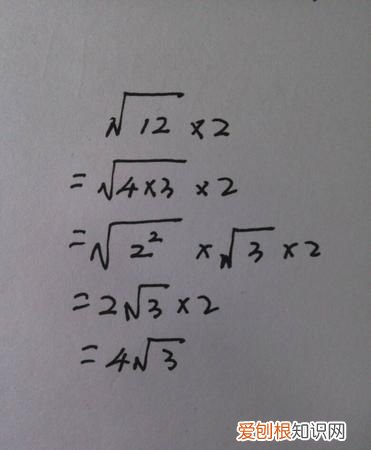 √12 ×2
=√4×3 ×2
=√2² ×√3 ×2
=2√3 ×2
=4√3
爱刨根知识网